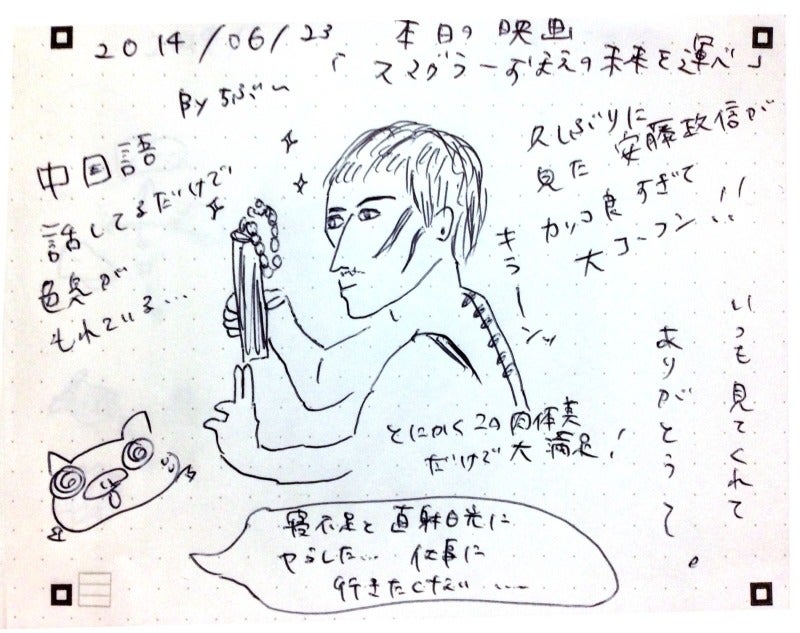 2014/06/23 本日の映画
「スマグラーおまえの未来を運べ」
By ちぶ〜
中国語
話してるだけで
色気が
もれている...
久しぶりに
見た 安藤政信が
カッコ良すぎて
大コーフン!!
キラーンッ
いつも見てくれて
ありがとうっ。
とにかくこの肉体美
だけで大満足!
寝不足と直射日光に
やられた... 仕事に
行きたくない......